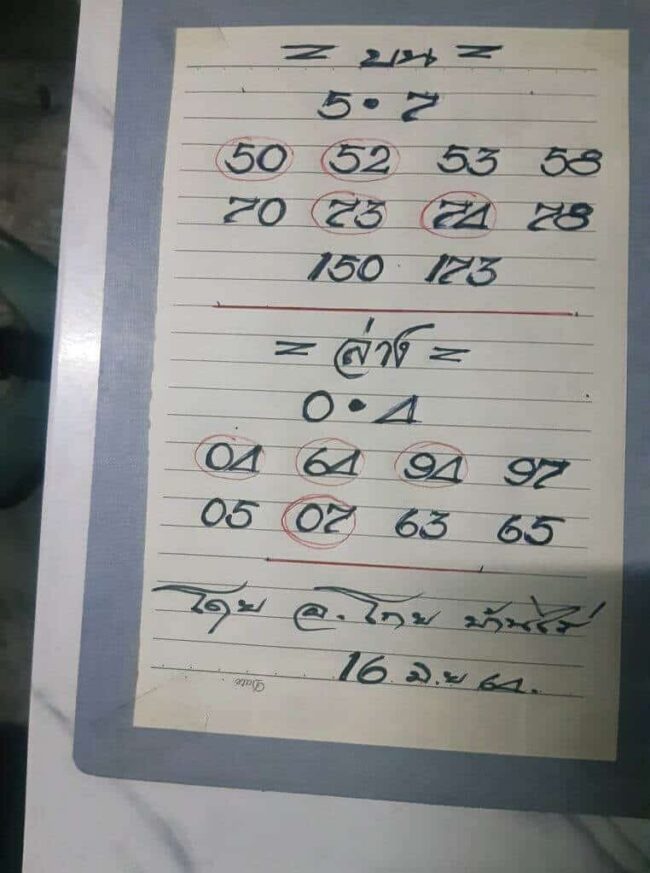 = บน =
5 • 7
50 52 53 58
70 73 74 78
150 173
= ล่าง =
0 • 4
04 64 94 97
05 07 63 65
โดย อ. โกย บ้านไร่
16 มิ.ย 64.
Date